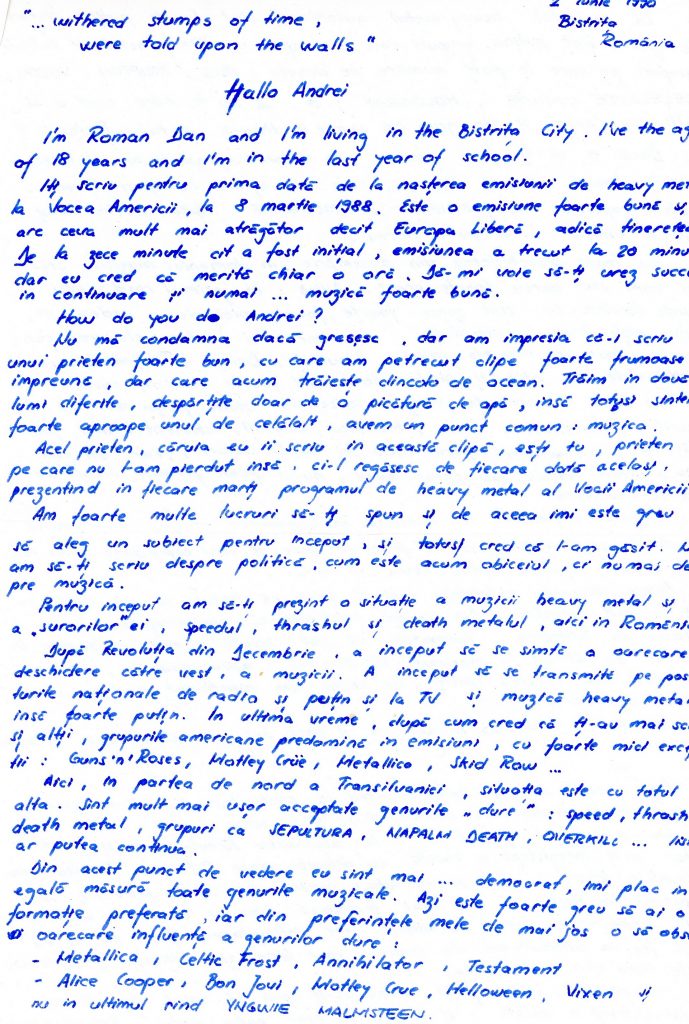 2 iunie 1990
"... withered stumps of time,
Bistrița
were told upon the walls"
România
Hallo Andrei
I'm Roman Dan and I'm living in the Bistrița City. I've the ag
of 18 years and I'm in the last year of school.
Iți scriu pentru prima dată de la nașterea emisiunii de heavy met
la Vocea Americii, la 8 martie 1988. Este o emisiune foarte bună și
are ceva mult mai atrăgător decit Europa Liberă, adică tinerețe
De la zece minute cit a fost inițial, emisiunea a trecut la 20 minu
dar eu cred că merită chiar o oră. Dă-mi voie să-ți urez succ
in continuare și numai ... muzică foarte bună.
How do you do Andrei?
Nu mă condamna dacă greșesc, dar am impresia că-i scriu
unui prieten foarte bun, cu care am petrecut clipe foarte frumoase
impreună, dar care acum trăiește dincolo de ocean. Trăim in două
lumi diferite, despărțite doar de o picătură de apă, insă totuși sinte
foarte aproape unul de celălalt, avem un punct comun: muzica.
Acel prieten, căruia eu ii scriu in această clipă, ești tu, prieten
pe care nu l-am pierdut insă, ci-l regăsesc de fiecare dată același,
prezentind in fiecare marți programul de heavy metal al Vocii Americii
Am foarte multe lucruri să-ți spun și de aceea imi este greu
să aleg un subiect pentru inceput, și totuși cred că l-am găsit. N
am să-ți scriu despre politică, cum este acum obiceiul, ci numai de
pre muzică.
Pentru inceput am să-ți prezint o situație a muzicii heavy metal și
a „surorilor" ei, speedul, thrashul și death metalul, aici in România
După Revoluția din Decembrie, a inceput să se simtă o oarecare
deschidere către vest, a muzicii. A inceput să se transmită pe pos
turile naționale de radio și puțin și la TV și muzică heavy meta
insă foarte puțin. In ultima vreme, după cum cred că ți-au mai sc
și alții, grupurile americane predomină in emisiuni, cu foarte mici exce
ții: Guns'n'Roses, Motley Crüe, Metallica, Skid Row ...
Aici, in partea de nord a Transilvaniei, situația este cu totul
alta. Sint mult mai ușor acceptate genurile „dure": speed, thrash
death metal, grupuri ca SEPULTURA, NAPALM DEATH, OVERKILL ... lis
ar putea continua.
Din acest punct de vedere eu sint mai ... democrat, imi plac in
egală măsură toate genurile muzicale. Azi este foarte greu să ai o
formație preferată, iar din preferințele mele de mai jos o să obs
o oarecare influență a genurilor dure:
- Metallica, Celtic Frost, Annihilator, Testament
- Alice Cooper, Bon Jovi, Motley Crue, Helloween, Vixen și
nu in ultimul rind YNGWIE MALMSTEEN.